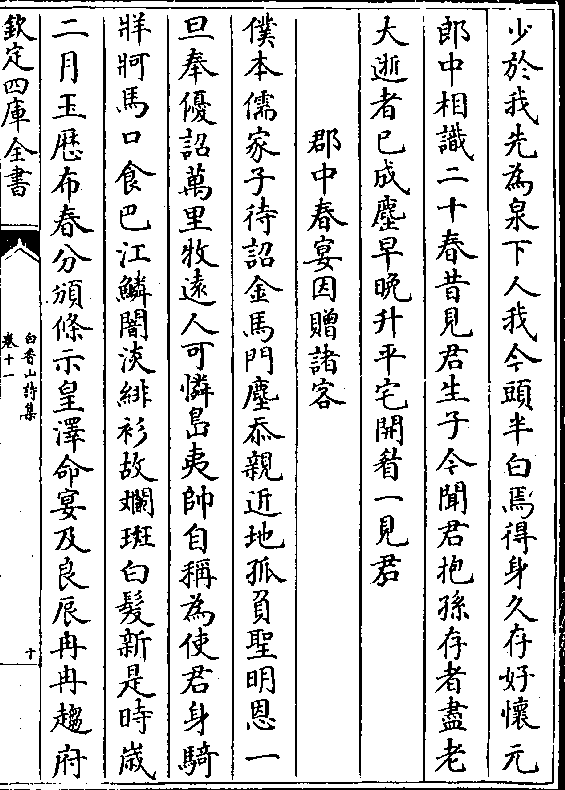 少於我先為泉下人我今頭半白焉得身久存好懷元
郎中相識二十春昔見君生子今聞君抱孫存者盡老
大逝者已成塵早晚升平宅開眉一見君
郡中春宴因贈諸客
僕本儒家子待詔金馬門塵忝親近地孤負聖明恩一
旦奉優詔萬里牧遠人可憐島夷帥自稱為使君身騎
牂牁馬口食巴江鱗闇淡緋衫故斕斑白髮新是時歲
二月玉歴布春分頒條示皇澤命宴及良辰冉冉趨府
欽定四庫全書
白香山詩集
卷十一
十